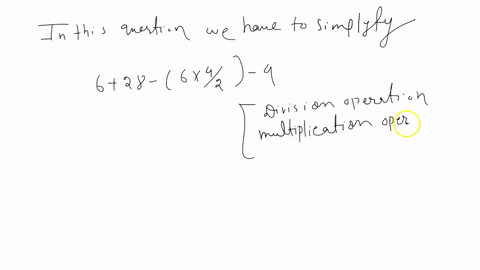 In this question we have to simplyfy
6 + 28 - ( 6 x 4/2 ) - 9
Division operation
multiplication oper